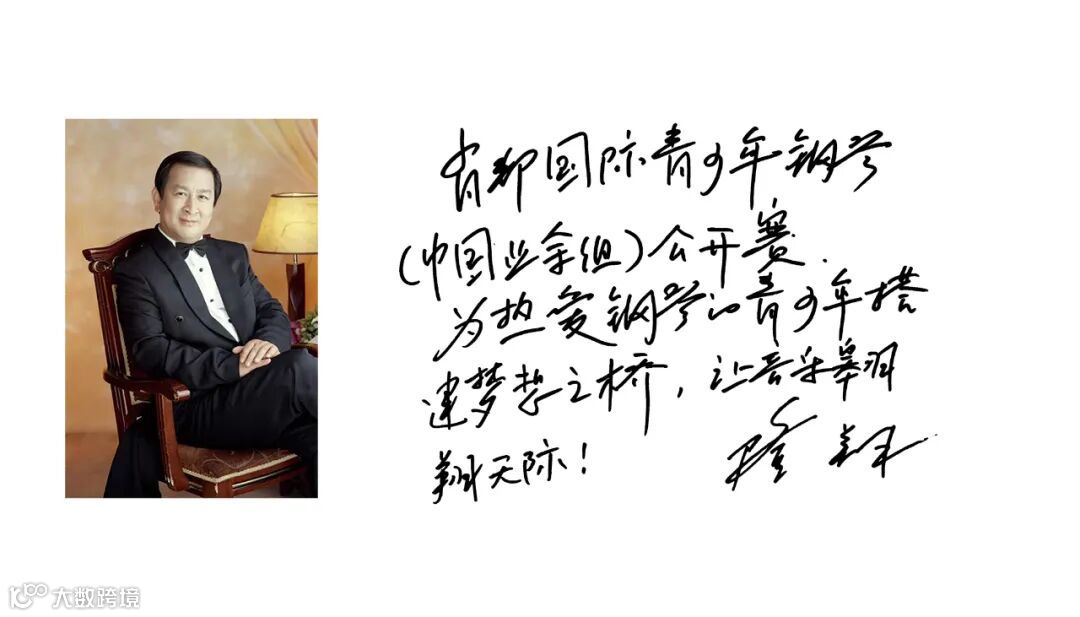 肖邦国际青少年钢琴
(中国业余组)公开赛.
为热爱钢琴的青少年搭
建梦想之桥，让音乐翱
翔天际！
大数跨境